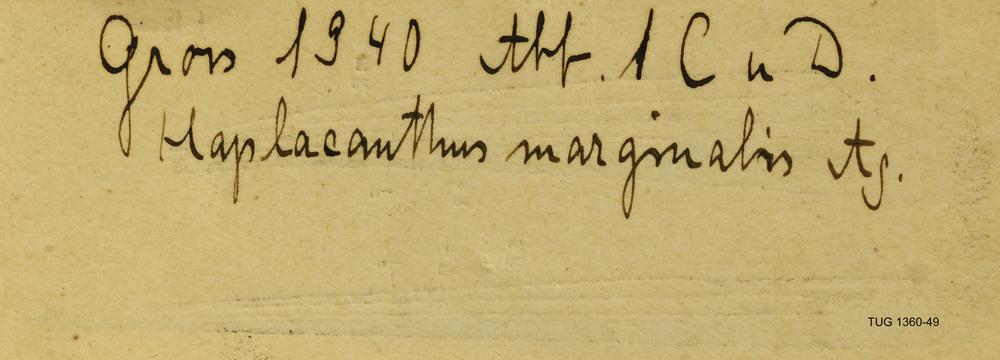 Gross 1940 Abb. 1 C u D.
Haplacanthus marginalis Ag.
TUG 1360-49